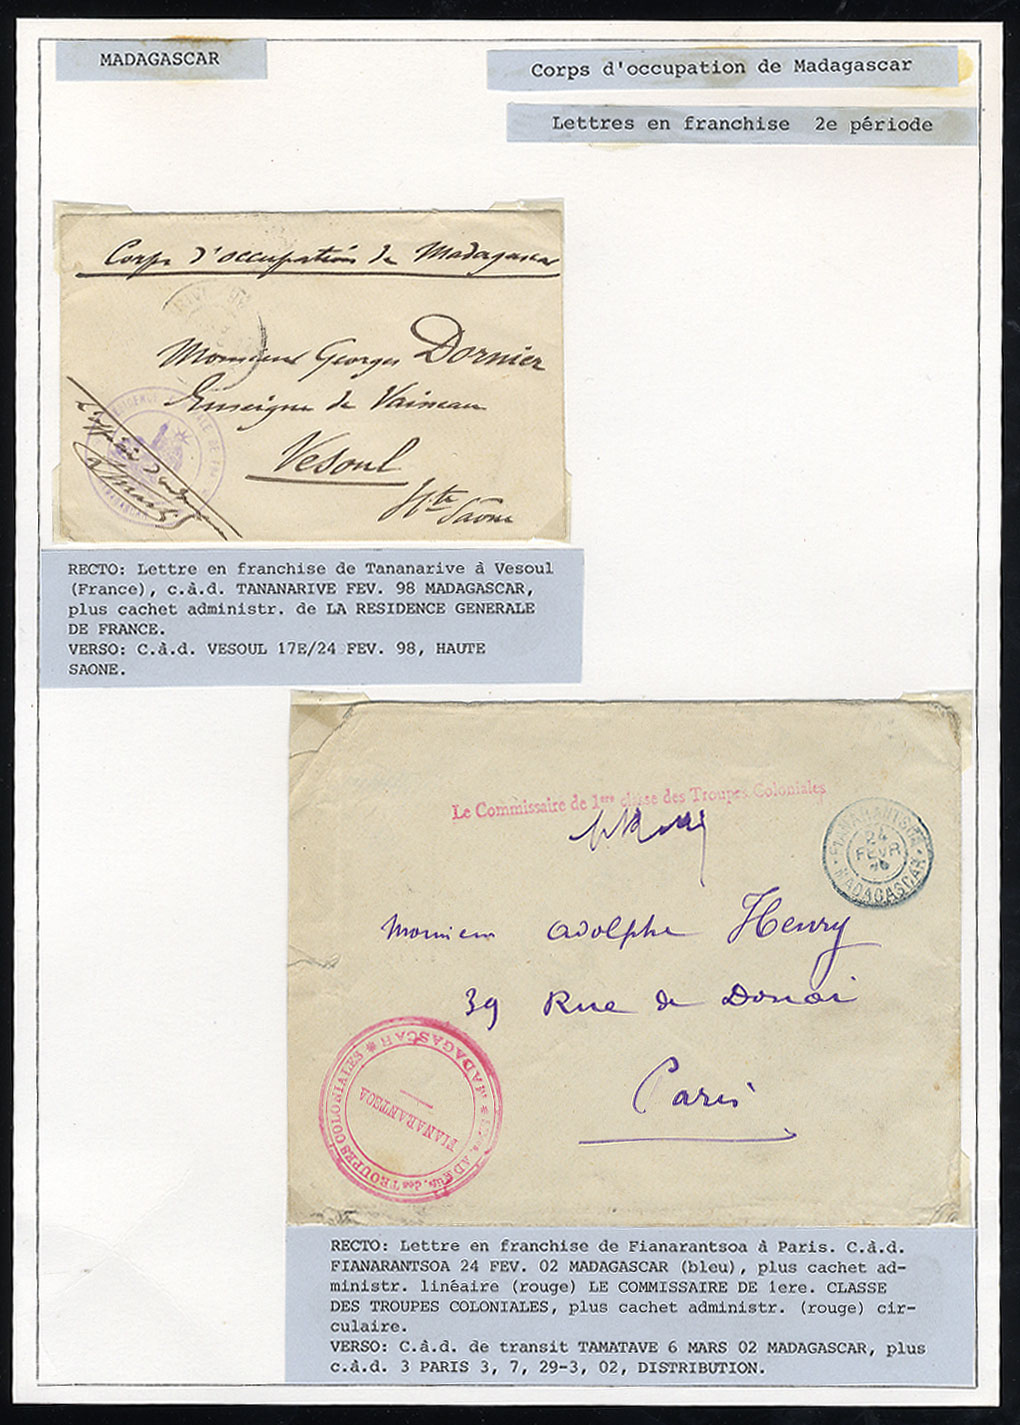 MADAGASCAR
Corps d'occupation de Madagascar
Lettres en franchise 2e période
Corps d'occupation de Madagascar
Monsieur Georges Dornier
Enseigne de Vaisseau
Vesoul
Hte Saône
RECTO: Lettre en franchise de Tananarive à Vesoul
(France), c.à.d. TANANARIVE FEV. 98 MADAGASCAR,
plus cachet administr. de LA RESIDENCE GENERALE
DE FRANCE.
VERSO: C.à.d. VESOUL 17E/24 FEV. 98, HAUTE
SAONE.
Le Commissaire de 1ere classe des Troupes Coloniales
FIANARANTSOA
24
FEVR
MADAGASCAR
Monsieur Adolphe Henry
39 Rue de Douai
Paris
des TROUPES COLONIALES * MADAGASCAR *
FIANARANTSOA
RECTO: Lettre en franchise de Fianarantsoa à Paris. C.à.d.
FIANARANTSOA 24 FEV. 02 MADAGASCAR (bleu), plus cachet ad-
ministr. linéaire (rouge) LE COMMISSAIRE DE 1ere. CLASSE
DES TROUPES COLONIALES, plus cachet administr. (rouge) cir-
culaire.
VERSO: C.à.d. de transit TAMATAVE 6 MARS 02 MADAGASCAR, plus
c.à.d. 3 PARIS 3, 7, 29-3, 02, DISTRIBUTION.